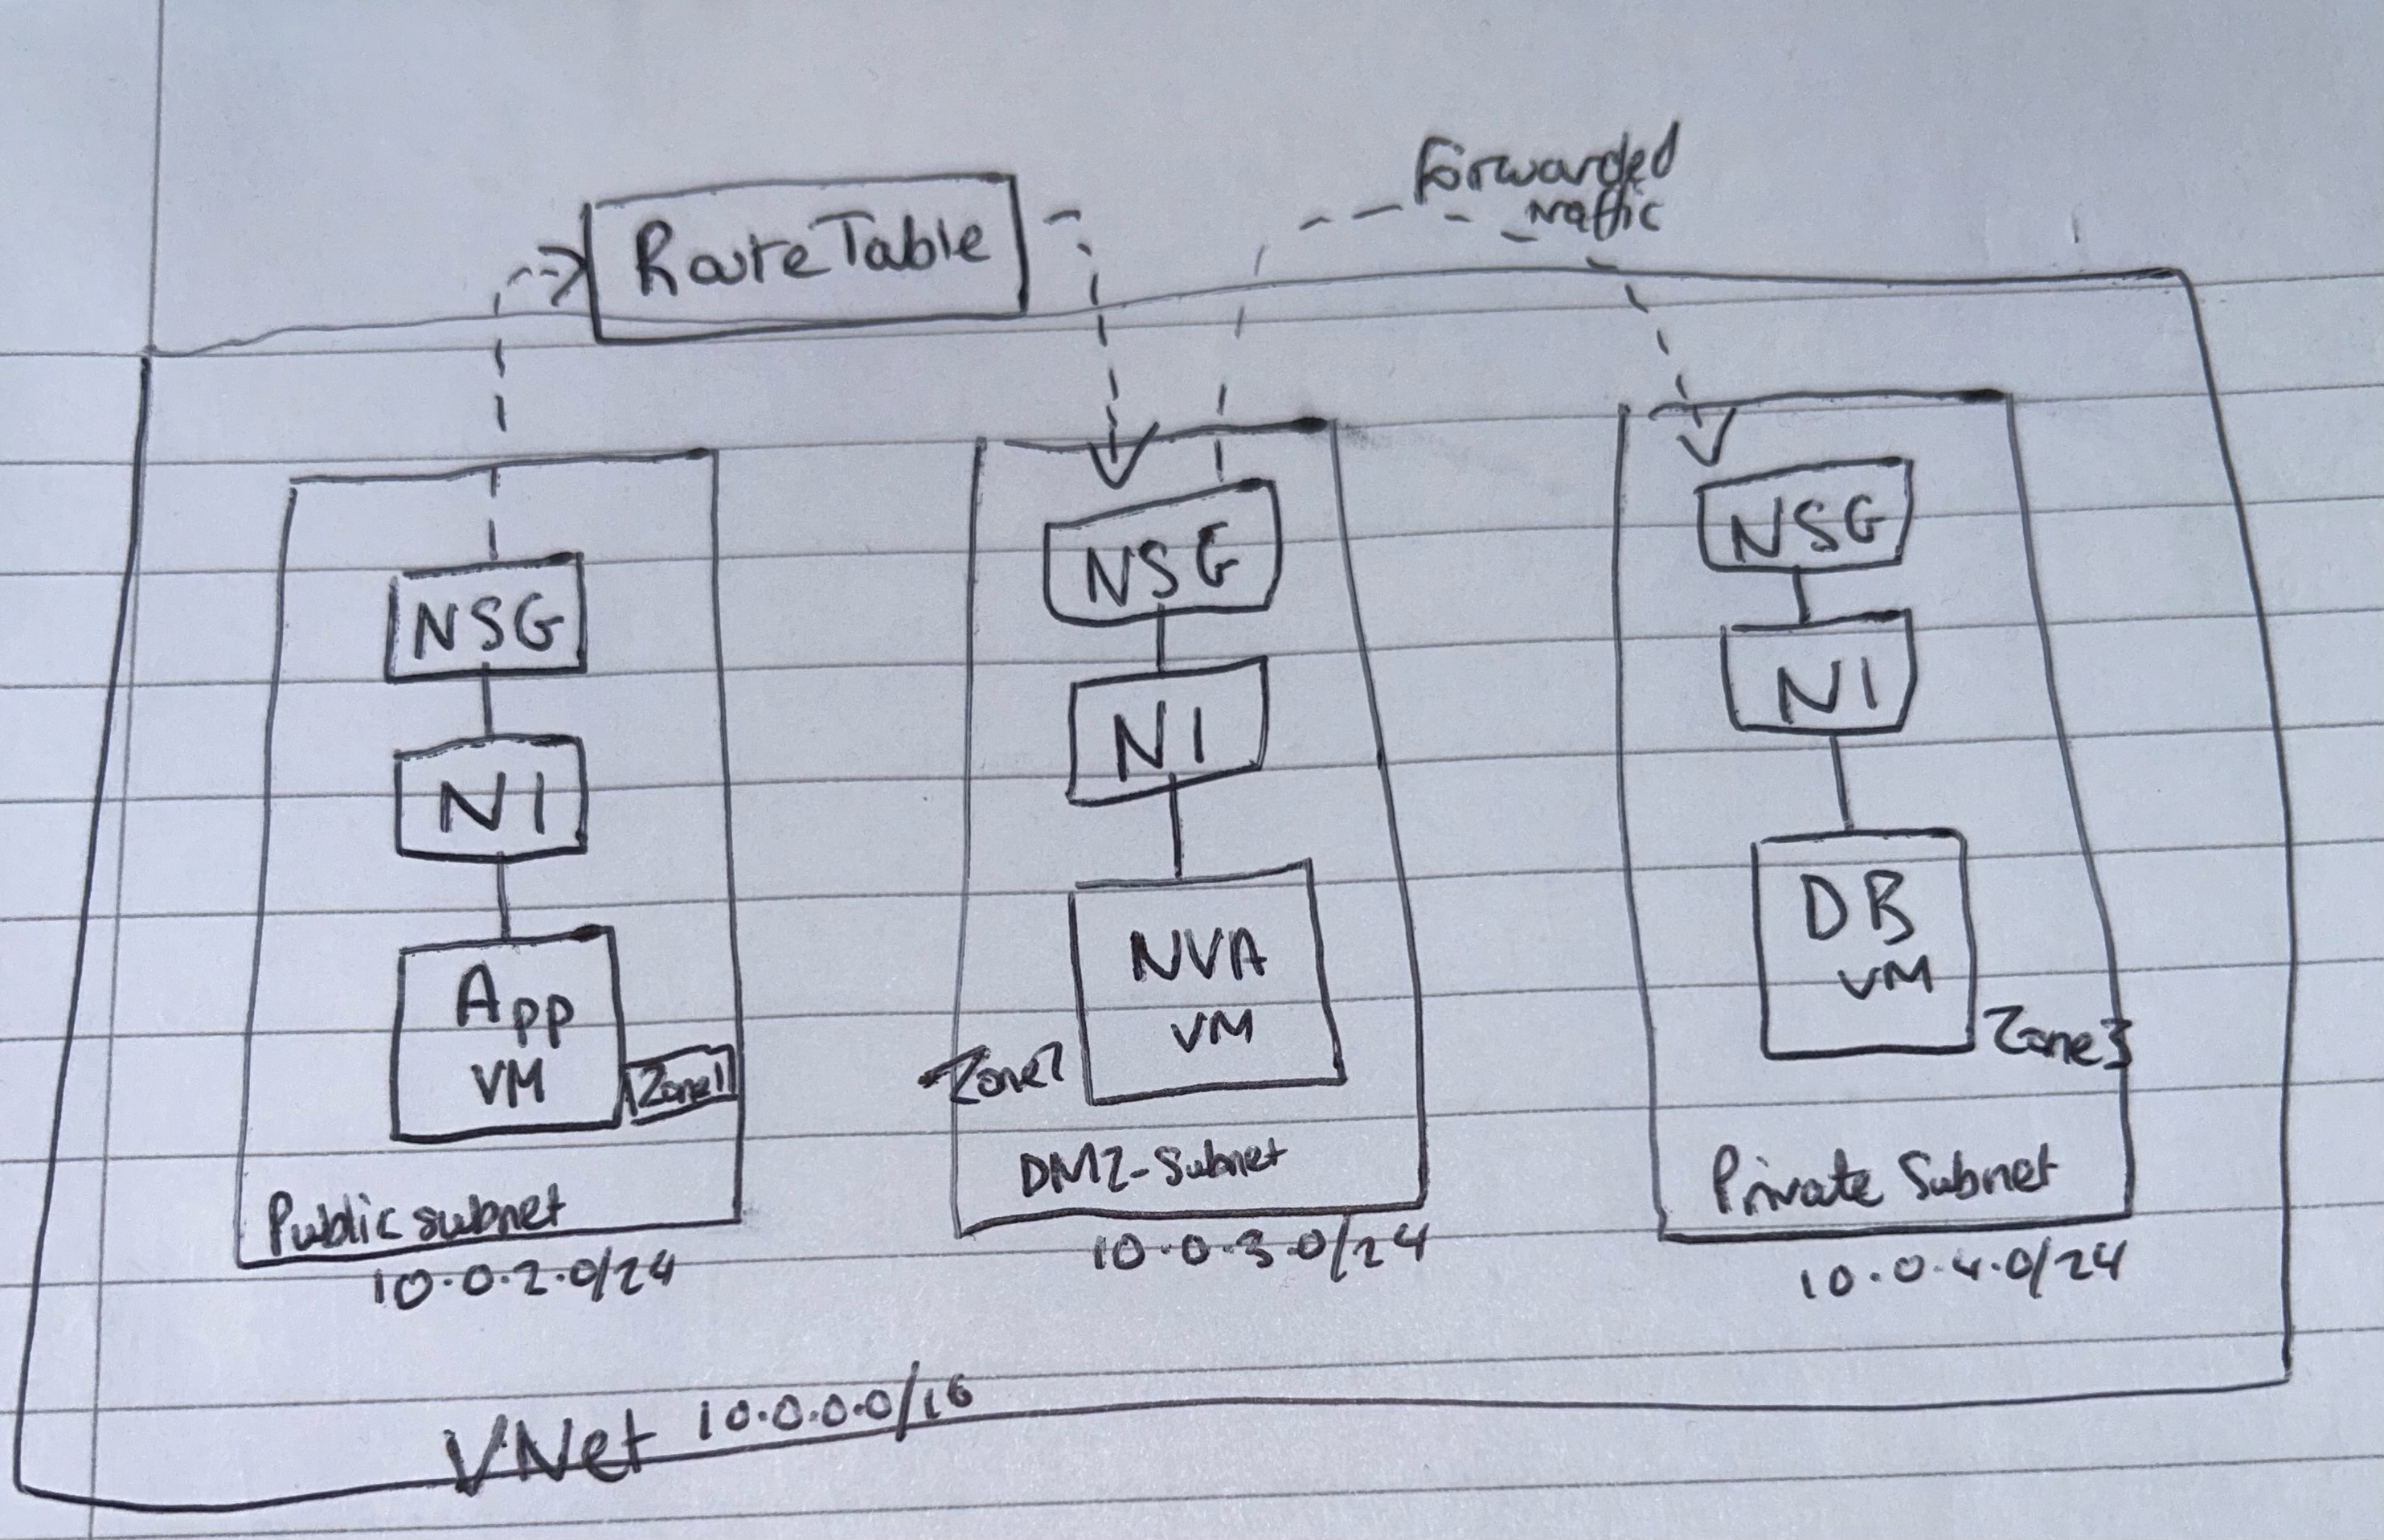 Forwarded
traffic
Route Table
NSG
NI
App
VM
Zone1
Public subnet
10.0.2.0/24
NSG
NI
NVA
VM
Zone2
DMZ-Subnet
10.0.3.0/24
NSG
NI
DB
VM
Zone3
Private Subnet
10.0.4.0/24
VNet 10.0.0.0/16